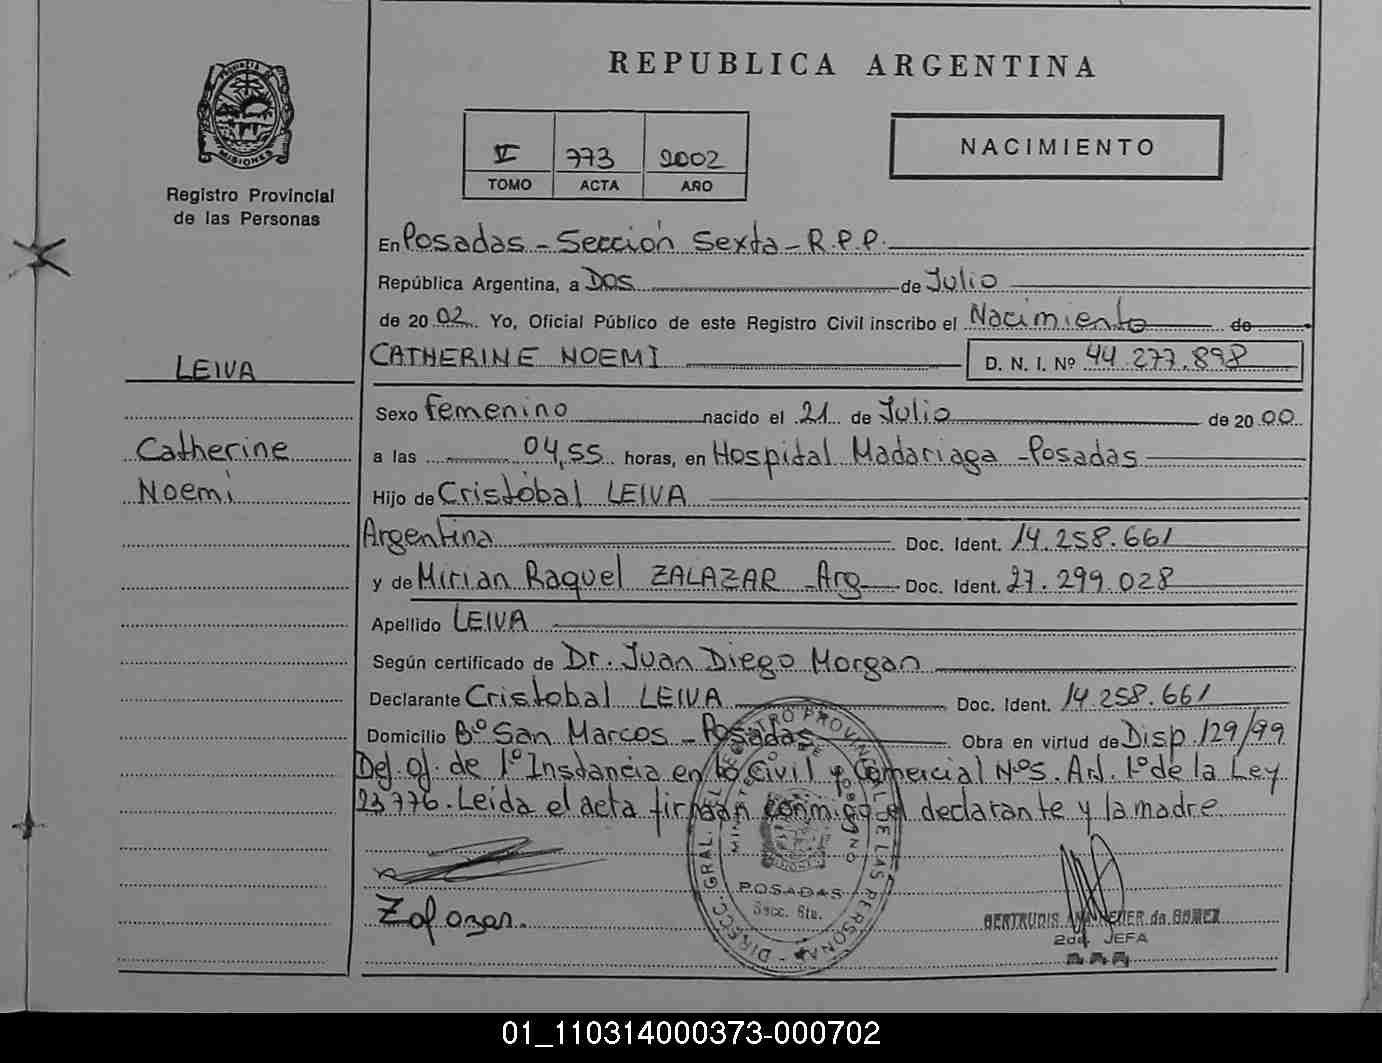 REPUBLICA ARGENTINA
PROVINCIA DE
MISIONES
Registro Provincial
de las Personas
V 773 2002
TOMO ACTA AÑO
NACIMIENTO
En Posadas - Sección Sexta - R.P.P.
República Argentina, a Dos de Julio
de 2002 Yo, Oficial Público de este Registro Civil inscribo el Nacimiento de
CATHERINE NOEMI D. N. I. Nº 44.277.898
LEIVA
Catherine
Noemi
Sexo femenino nacido el 21 de Julio de 2000
a las 04,55 horas, en Hospital Madariaga - Posadas
Hijo de Cristobal LEIVA
Argentina Doc. Ident. 14.258.661
y de Mirian Raquel ZALAZAR - Arg Doc. Ident. 27.299.028
Apellido LEIVA
Según certificado de Dr. Juan Diego Morgan
Declarante Cristobal LEIVA Doc. Ident. 14.258.661
Domicilio Bº San Marcos - Posadas Obra en virtud de Disp. 129/99
Def. Of. de 1º Instancia en lo Civil y Comercial Nº5. Art. 1º de la Ley
23776. Leida el acta firman conmigo el declarante y la madre.
DIRECC. GRAL. DEL REGISTRO PROVINCIAL DE LAS PERSONAS
MINISTERIO DE GOBIERNO
POSADAS
Secc. 6ta.
Zalazar.
GERTRUDIS de GOMEZ
2da. JEFA
01_110314000373-000702